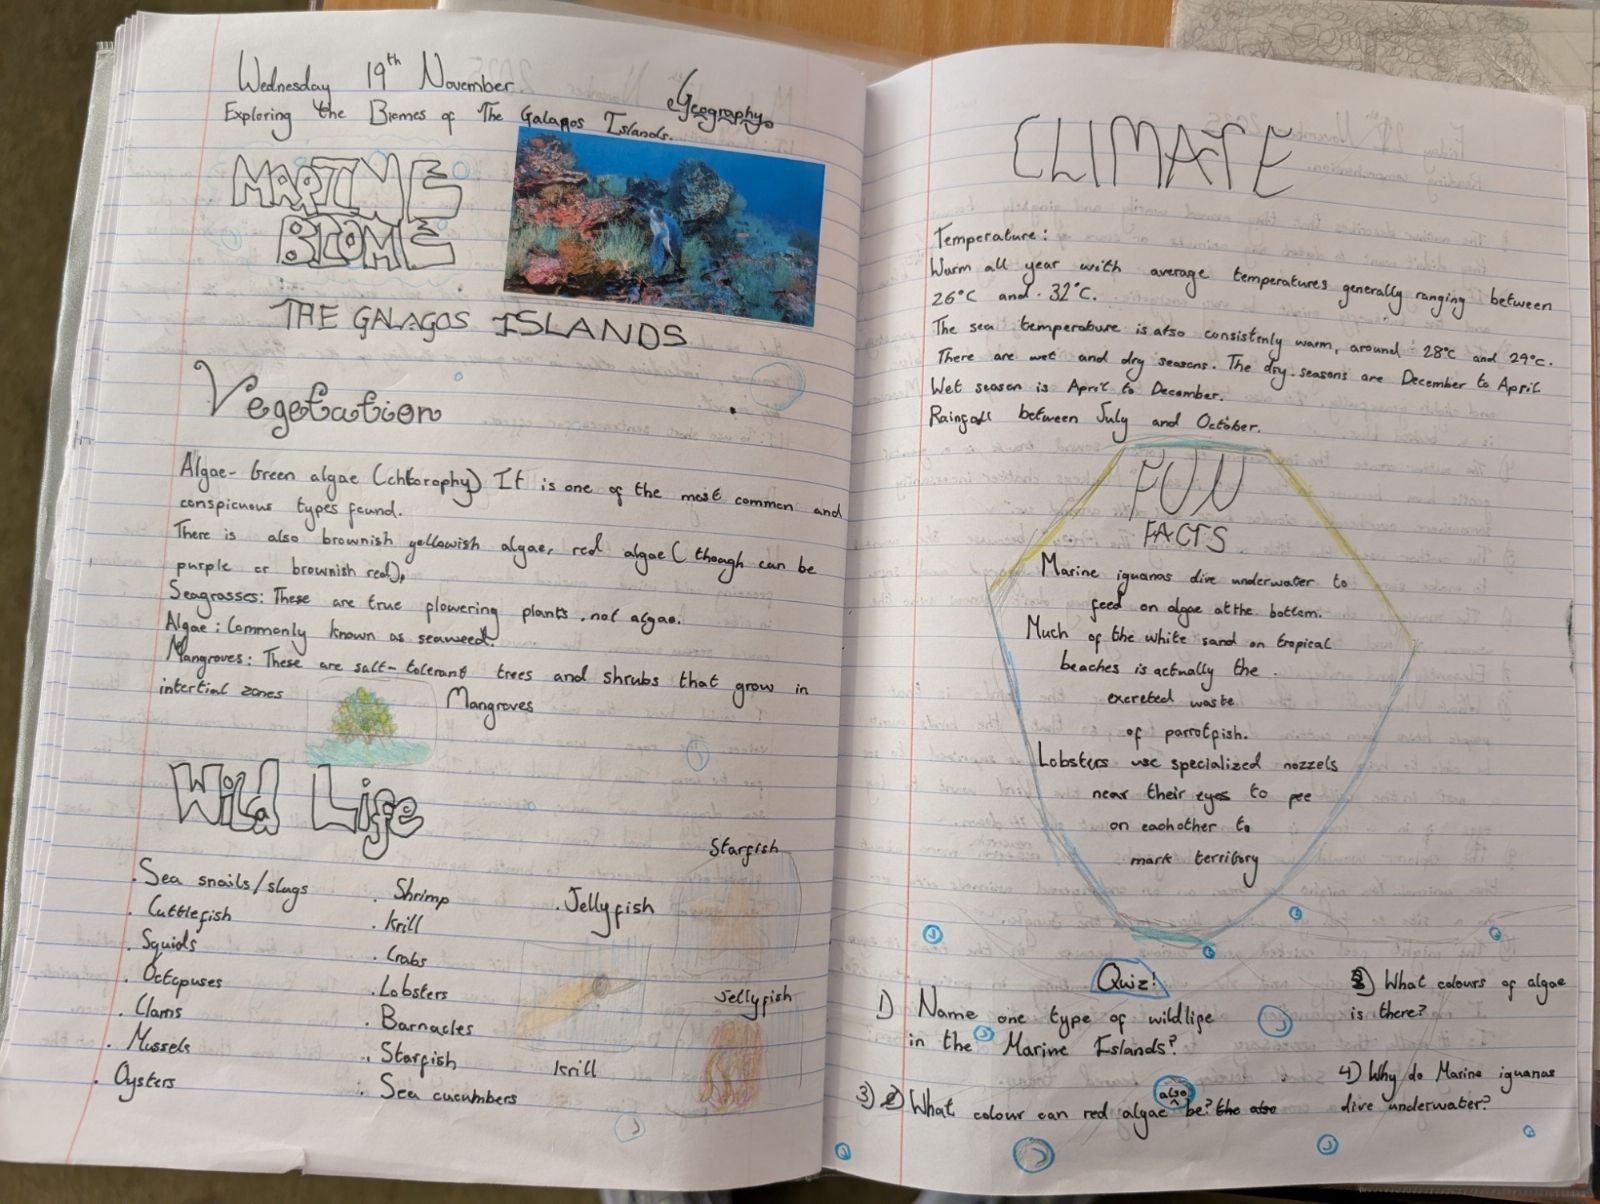 Wednesday 19th November
Geography
Exploring the Biomes of The Galapos Islands...
MARINE
BIOME
THE GALAGOS ISLANDS
Vegetation
Algae- Green algae (chlorophy) It is one of the most common and
conspicuous types found.
There is also brownish yellowish algae, red algae (though can be
purple or brownish red),
Seagrasses: These are true flowering plants, not algae.
Algae: Commonly known as seaweed.
Mangroves: These are salt-tolerant trees and shrubs that grow in
intertial zones
Mangroves
Wild Life
. Sea snails/slugs
. Cuttlefish
. Squids
. Octopuses
. Clams
. Mussels
. Oysters
. Shrimp
. Krill
. Crabs
. Lobsters
. Barnacles
. Starfish
. Sea cucumbers
. Jellyfish
Starfish
Jellyfish
Krill
CLIMATE
Temperature:
Warm all year with average temperatures generally ranging between
26°C and 32°C.
The sea temperature is also consistenly warm, around 28°C and 29°C.
There are wet and dry seasons. The dry seasons are December to April
Wet season is April to December.
Rainfall between July and October.
FUN
FACTS
Marine iguanas dive underwater to
feed on algae at the bottom.
Much of the white sand on tropical
beaches is actually the
excreted waste
of parrotfish.
Lobsters use specialized nozzels
near their eyes to pee
on eachother to
mark territory
Quiz!
1) Name one type of wildlife
in the Marine Islands?
2) What colours of algae
is there?
3) What colour can red algae also be? the also
4) Why do Marine iguanas
dive underwater?